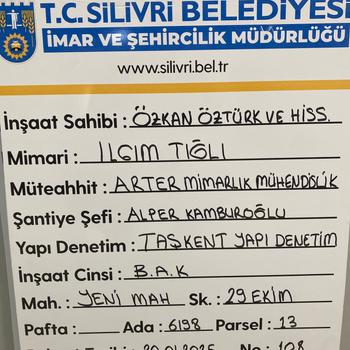 T.C. SİLİVRİ BELEDİYESİ
İMAR VE ŞEHİRCİLİK MÜDÜRLÜĞÜ
www.silivri.bel.tr
İnşaat Sahibi : ÖZKAN ÖZTÜRK VE HİSS.
Mimari : ILGIM TIĞLI
Müteahhit : ARTER MİMARLIK MÜHENDİSLİK
Şantiye Şefi : ALPER KAMBUROĞLU
Yapı Denetim : TAŞKENT YAPI DENETİM
İnşaat Cinsi : B.A.K
Mah. : YENİ MAH Sk. : 29 EKİM
Pafta : Ada : 6198 Parsel : 13
No : 108